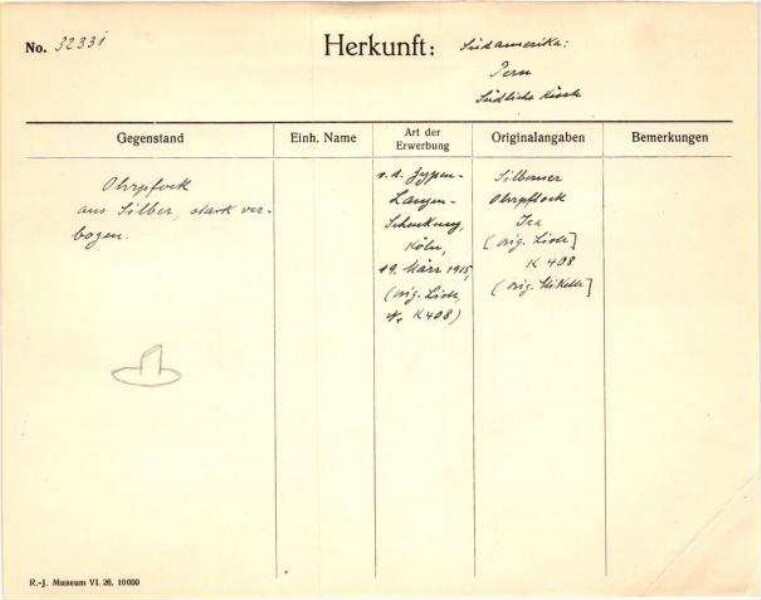 No. 32331
Herkunft: Südamerika:
Peru
Südliche Küste
Gegenstand
Einh. Name
Art der
Erwerbung
Originalangaben
Bemerkungen
Ohrpflock
aus Silber, stark ver-
bogen.
v. d. Zypen-
Langen-
Schenkung,
Köln,
19. März 1915,
(orig. Liste,
Nr K 408)
Silberner
Ohrpflock
Ica
(orig. Liste]
K 408
(orig. Etikette]
R.-J. Museum VI. 26. 10000